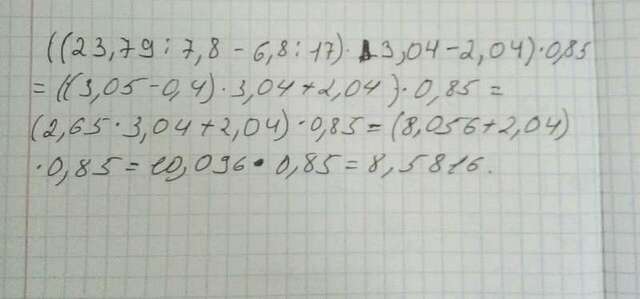 ((23,79:7,8-6,8:17)·3,04-2,04)·0,85
=((3,05-0,4)·3,04+2,04)·0,85=
(2,65·3,04+2,04)·0,85=(8,056+2,04)
·0,85=10,096·0,85=8,5816.